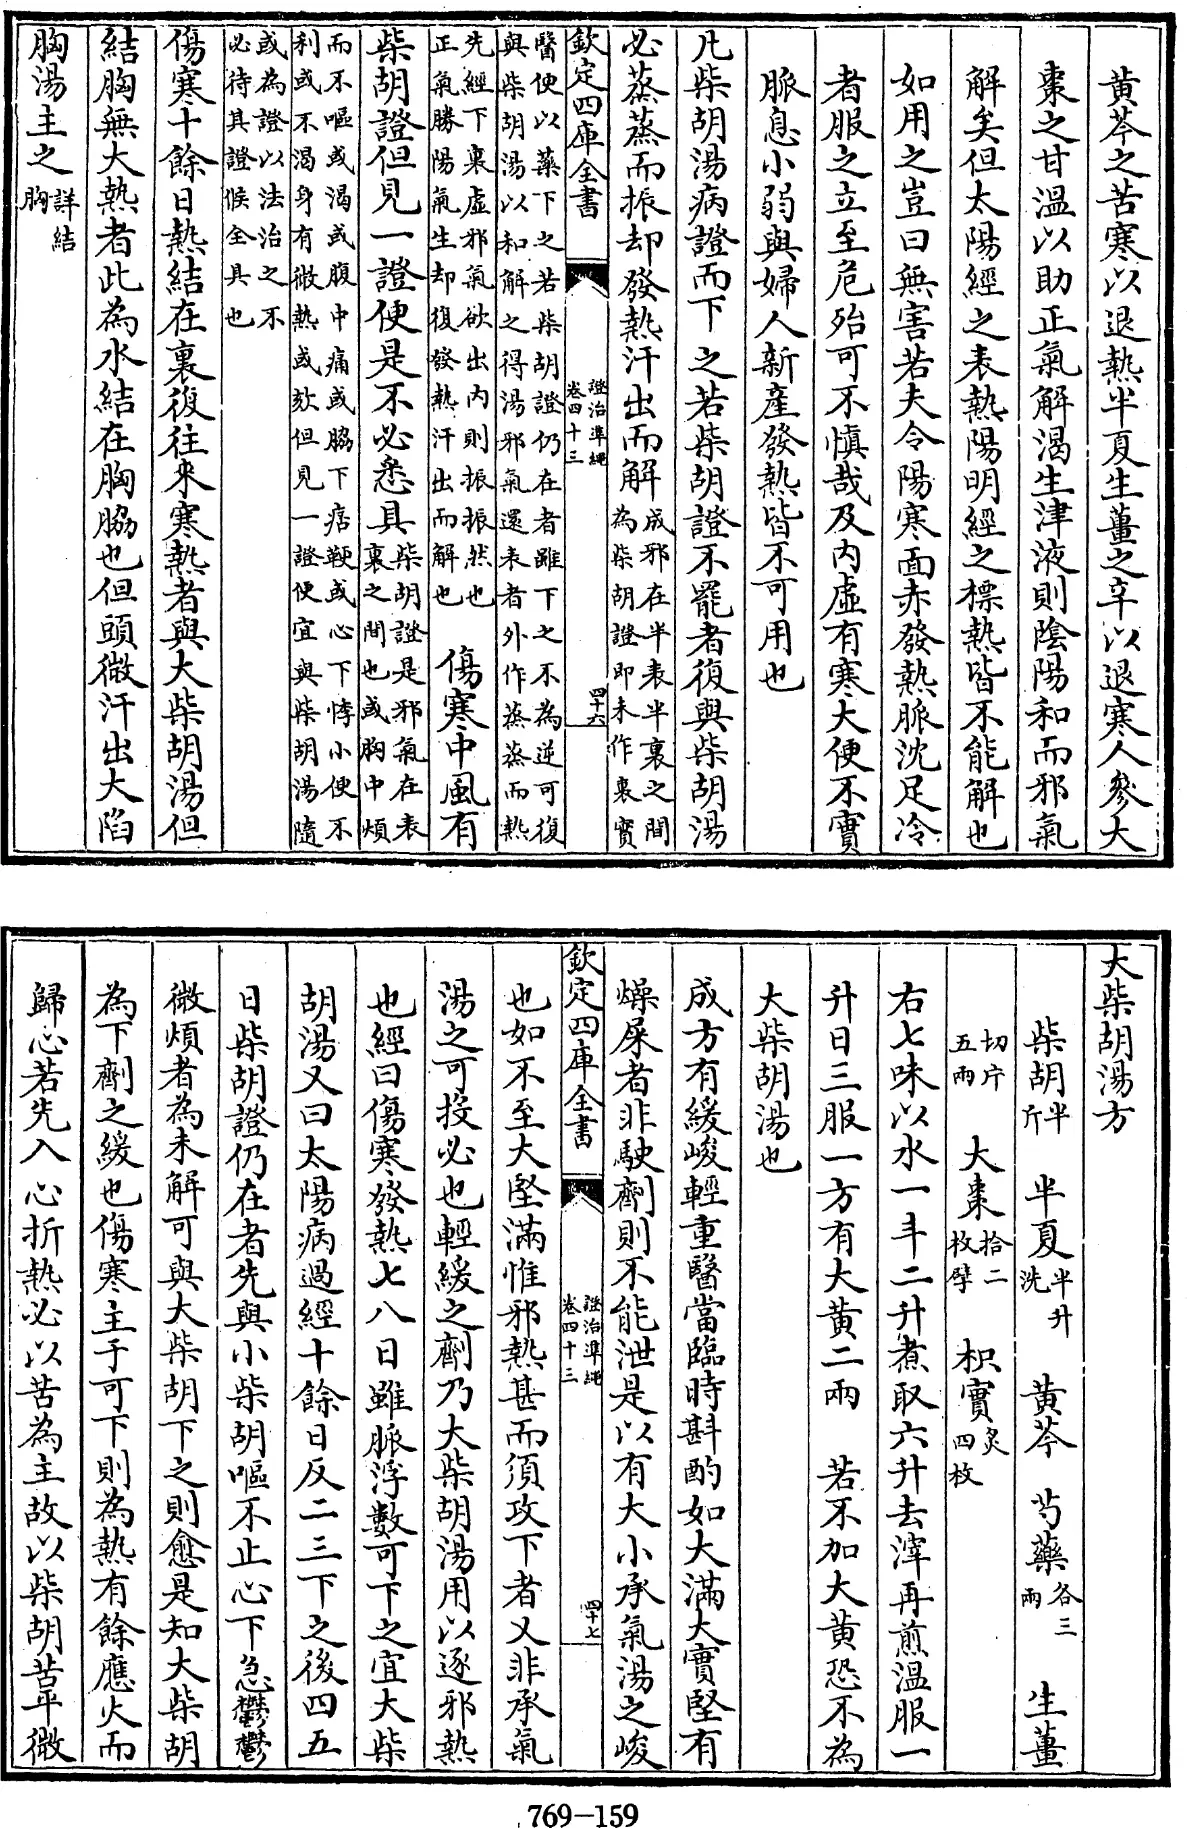 黄芩之苦寒以退熱半夏生薑之辛以退寒人參大
棗之甘溫以助正氣解渴生津液則陰陽和而邪氣
解矣但太陽經之表熱陽明經之標熱皆不能解也
如用之豈曰無害若夫令陽寒面赤發熱脈沈足冷
者服之立至危殆可不慎哉及内虛有寒大便不實
脈息小弱與婦人新産發熱皆不可用也
凡柴胡湯病證而下之若柴胡證不罷者復與柴胡湯
必蒸蒸而振却發熱汗出而解成邪在半表半裏之間
為柴胡證即未作裏實
欽定四庫全書
證治準繩
卷四十三
四十六
醫便以藥下之若柴胡證仍在者雖下之不為逆可復
與柴胡湯以和解之得湯邪氣還表者外作蒸蒸而熱
先經下裏虛邪氣欲出内則振振然也
正氣勝陽氣生却復發熱汗出而解也
傷寒中風有
柴胡證但見一證便是不必悉具柴胡證是邪氣在表
裏之間也或胸中煩
而不嘔或渴或腹中痛或脇下痞鞕或心下悸小便不
利或不渴身有微熱或欬但見一證便宜與柴胡湯隨
或為證以法治之不
必待其證候全具也
傷寒十餘日熱結在裏復往來寒熱者與大柴胡湯但
結胸無大熱者此為水結在胸脇也但頭微汗出大陷
胸湯主之詳結
胸
大柴胡湯方
柴胡半
斤
半夏半升
洗
黄芩
芍藥各三
兩
生薑
切片
五兩
大棗拾二
枚擘
枳實炙
四枚
右七味以水一斗二升煮取六升去滓再煎温服一
升日三服一方有大黄二兩
若不加大黄恐不為
大柴胡湯也
成方有緩峻輕重醫當臨時斟酌如大滿大實堅有
燥屎者非駛劑則不能泄是以有大小承氣湯之峻
欽定四庫全書
證治準繩
卷四十三
四十七
也如不至大堅滿惟邪熱甚而須攻下者又非承氣
湯之可投必也輕緩之劑乃大柴胡湯用以逐邪熱
也經曰傷寒發熱七八日雖脈浮數可下之宜大柴
胡湯又曰太陽病過經十餘日反二三下之後四五
日柴胡證仍在者先與小柴胡嘔不止心下急鬱鬱
微煩者為未解可與大柴胡下之則愈是知大柴胡
為下劑之緩也傷寒主于可下則為熱有餘應火而
歸心苦先入心折熱必以苦為主故以柴胡苦平微
769-159